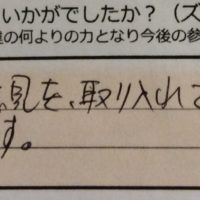 いかがでしたか？（ズ
の何よりの力となり今後の参
見を、取り入れて
す。